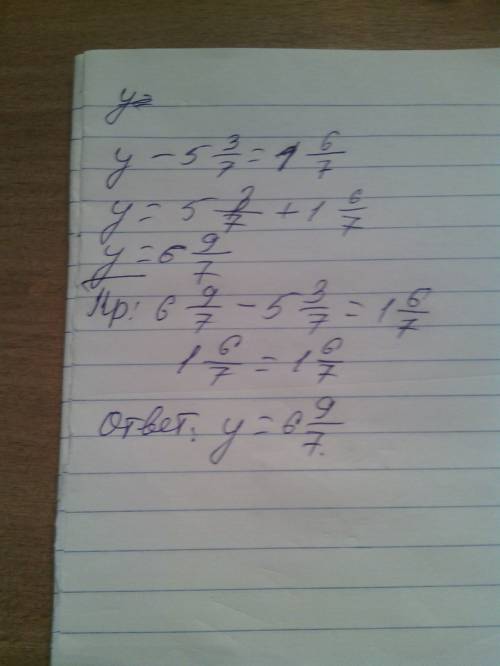 y=
y - 5 3/7 = 1 6/7
y = 5 3/7 + 1 6/7
y = 6 9/7
Пр: 6 9/7 - 5 3/7 = 1 6/7
1 6/7 = 1 6/7
Ответ: y = 6 9/7.